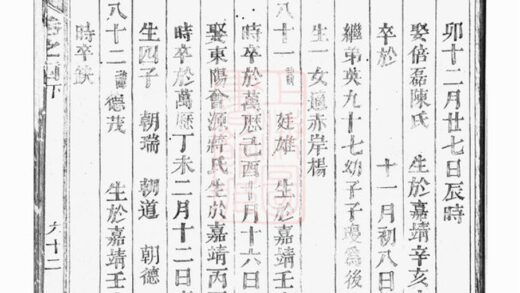 卯十二月廿七日辰時
娶倍磊陳氏 生於嘉靖辛亥
卒於 十一月初八日
繼弟英九十七幼子子瓊爲後
生一女適赤岸楊
八十一 諱廷雄 生於嘉靖壬
時卒於萬厯己酉十月十六日
娶東陽會源蔣氏生於嘉靖丙
時卒於萬厯丁未二月十二日
生四子 朝瑞 朝道 朝德
八十二 諱德茂 生於嘉靖壬
時卒缺
九十二